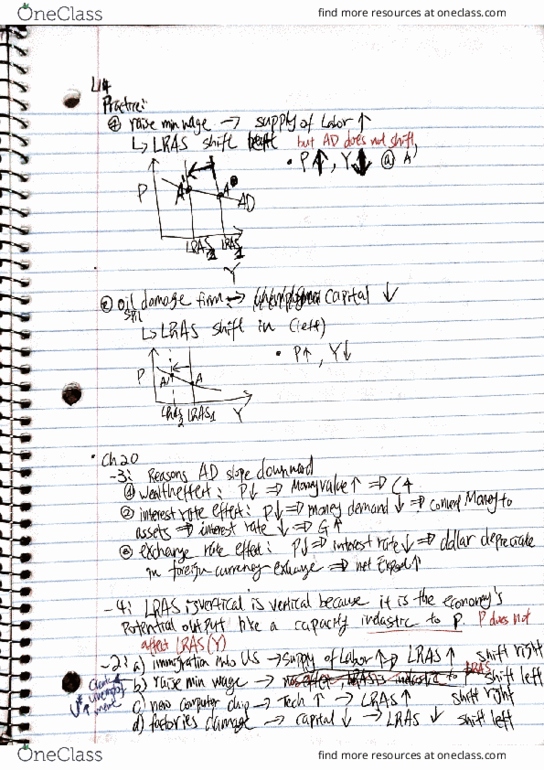 OneClass
find more resources at oneclass.com
L14
Practice:
① raise min wage → supply of Labor ↑
↳ LRAS shift but AD does not shift
• P↑, Y↓ @ A'
P
A' A
AD
LRAS2 LRAS1
Y
② oil spill damage firm → capital ↓
↳ LRAS shift in (left)
• P↑, Y↓
P
A' A
LRAS2 LRAS1 Y
• Ch 20
-3: Reasons AD slope downward
① wealth effect: P↓ ⇒ Money value ↑ ⇒ C↑
② interest rate effect: P↓ ⇒ money demand ↓ ⇒ convert Money to
assets ⇒ interest rate ↓ ⇒ G↑
③ exchange rate effect: P↓ ⇒ interest rate ↓ ⇒ dollar depreciate
in foreign currency exchange ⇒ net Export ↑
-4: LRAS is vertical is vertical because it is the economy's
Potential output like a capacity inelastic to P. P does not
affect LRAS (Y)
-2: a) immigration into US → supply of Labor ↑ → LRAS ↑ shift right
b) raise min wage → LRAS shift left
c) new computer chip → Tech ↑ → LRAS ↑ shift right
d) factories damage → capital ↓ → LRAS ↓ shift left
OneClass
find more resources at oneclass.com